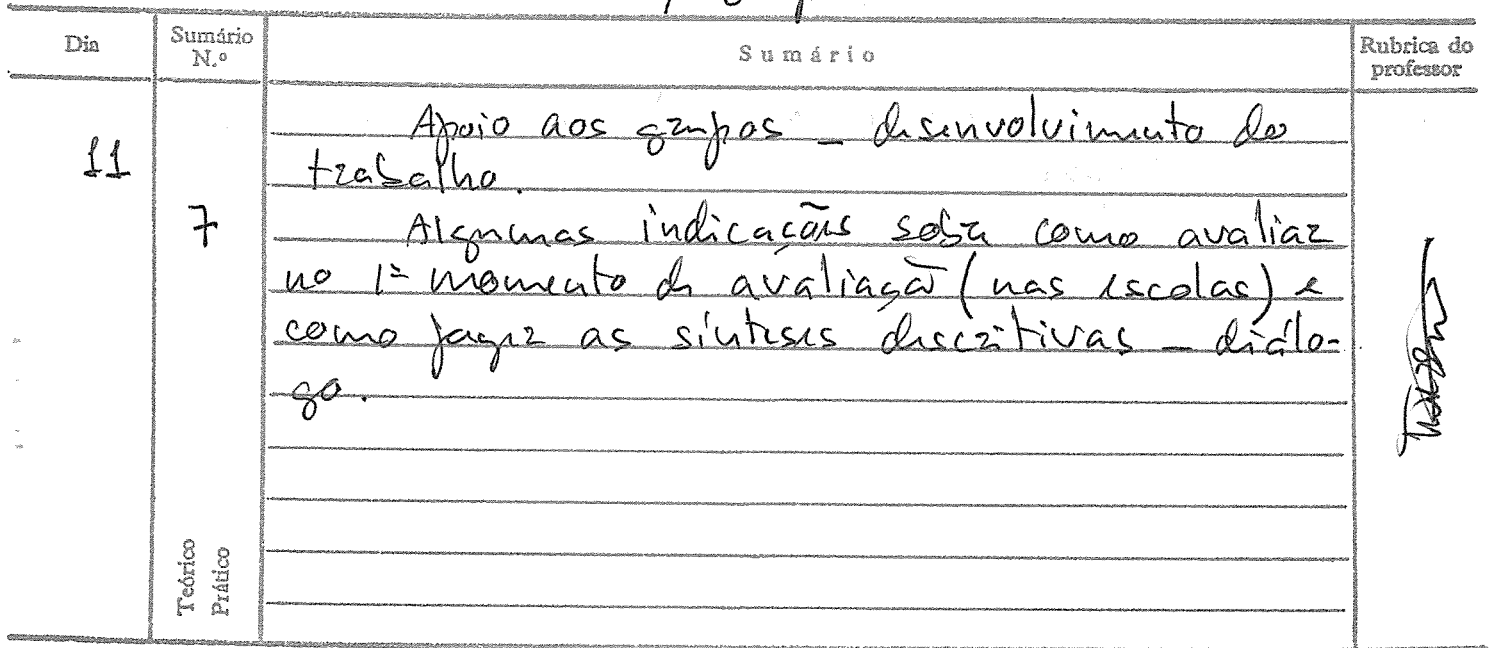 Dia
Sumário N.º
Sumário
Rubrica do professor
Apoio aos grupos – desenvolvimento do
11
trabalho.
7
Algumas indicações sobre como avaliar
no 1º momento de avaliação (nas escolas) e
como fazer as sínteses descritivas – diálo-
go.
Teórico
Prático